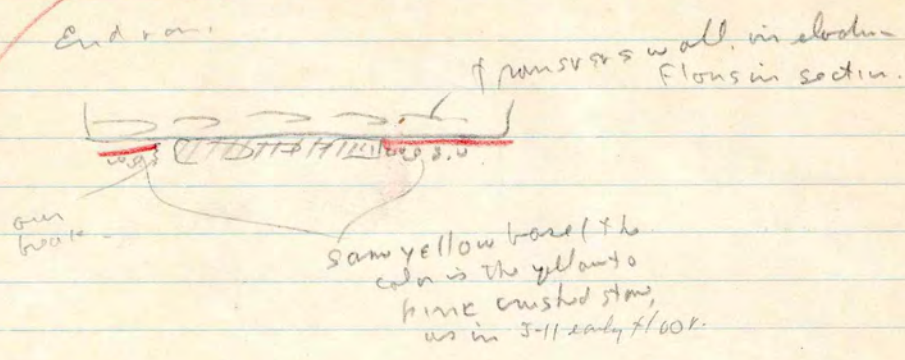 End room.
Transverse wall. in elevation
Floors in section.
our
break
same yellow base (the
color is the yellow to
pink crushed stone,
as in J-11 early floor.